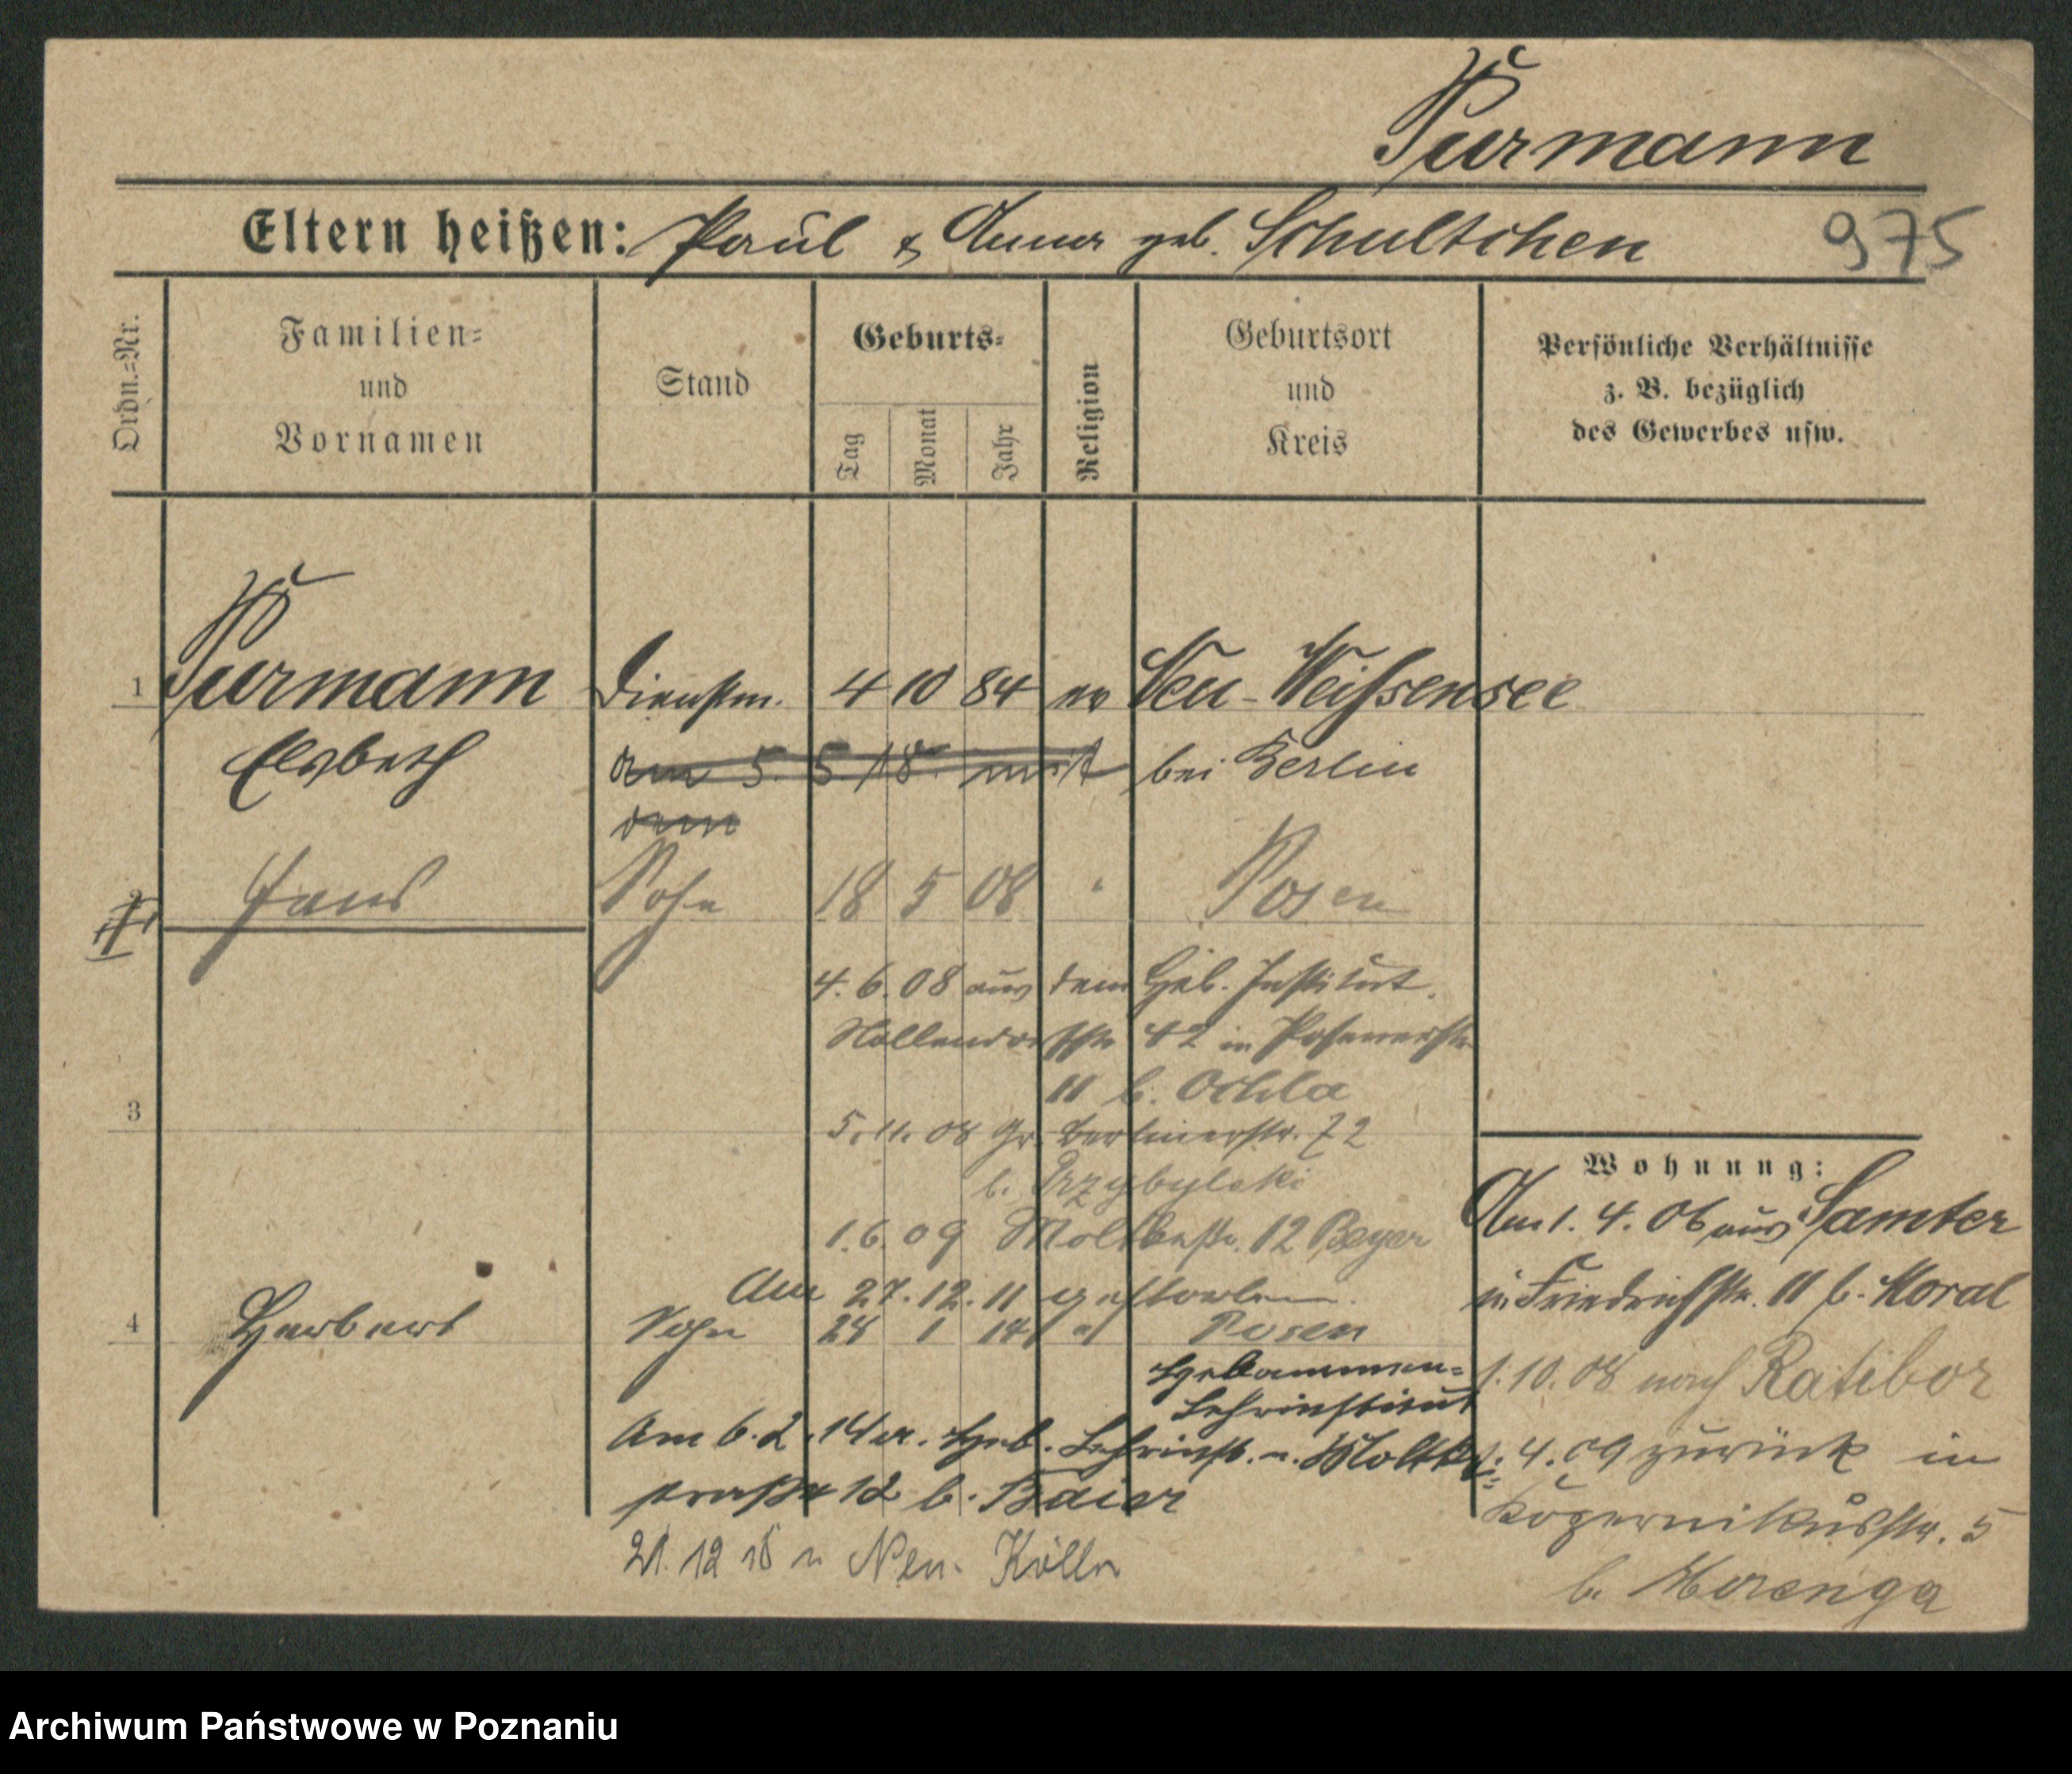 Purmann
Eltern heißen: Paul & Anna geb. Schultchen
975
Ordn.=Nr.
Familien=
und
Vornamen
Stand
Geburts=
Tag
Monat
Jahr
Religion
Geburtsort
und
Kreis
Persönliche Verhältnisse
z. B. bezüglich
des Gewerbes usw.
1 Purmann Dienstm. 4 10 84 ev Neu-Weißensee
Elsbeth am 5. 5. 18 mit bei Berlin
dem
2 Hans Sohn 18 5 08 " Posen
4. 6. 08 aus dem Heb. Institut.
Nollendorfstr 42 in Posenerstr
11 b. Ochla
3
5. 11. 08 Gr. Berlinerstr. 72
b. Przybylski
1. 6. 09 Moltkestr. 12 Beyer
Am 27. 12. 11 gestorben.
4 Herbert Sohn 28 1 14 Posen
Hebammen=
Lehrinstitut
Am 6. 2. 14 Heb. Lehrinst. n. Moltke=
straße 12 b. Baier
21. 12 15 n Neu-Kölln
Wohnung:
Am 1. 4. 06 aus Samter
in Friedrichstr. 11 b. Moral
1. 10. 08 nach Ratibor
1. 4. 09 zurück in
Kopernikusstr. 5
b. Morenga
Archiwum Państwowe w Poznaniu